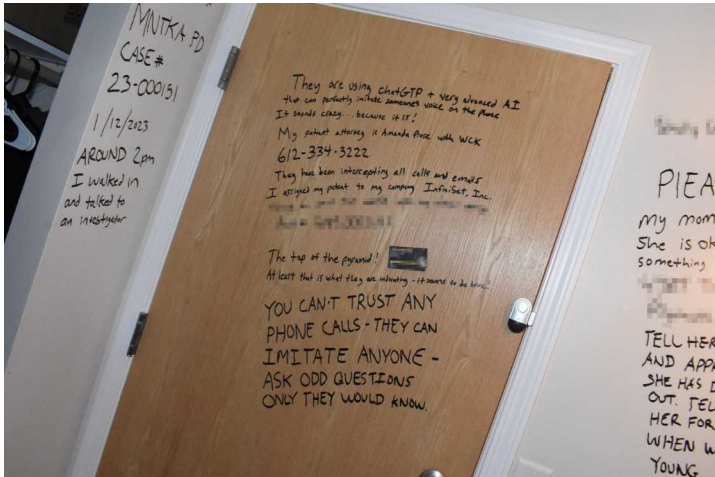 MNTKA PD
CASE#
23-000151
1/12/2023
AROUND 2pm
I walked in
and talked to
an investigator
They are using chatGTP + very advanced A.I
that can perfectly imitate someone's voice on the phone
It sounds crazy... because it is!
My patent attorney is Amanda Prose with WCK
612-334-3222
They have been intercepting all calls and emails
I assigned my patent to my company InfiniSet, Inc.
The top of the pyramid!
At least that is what they are indicating - it seems to be true.
YOU CAN'T TRUST ANY
PHONE CALLS - THEY CAN
IMITATE ANYONE -
ASK ODD QUESTIONS
ONLY THEY WOULD KNOW.
my mom
She is
something
TELL HER
AND
SHE HAS
OUT.
HER FOR
WHEN
YOUNG